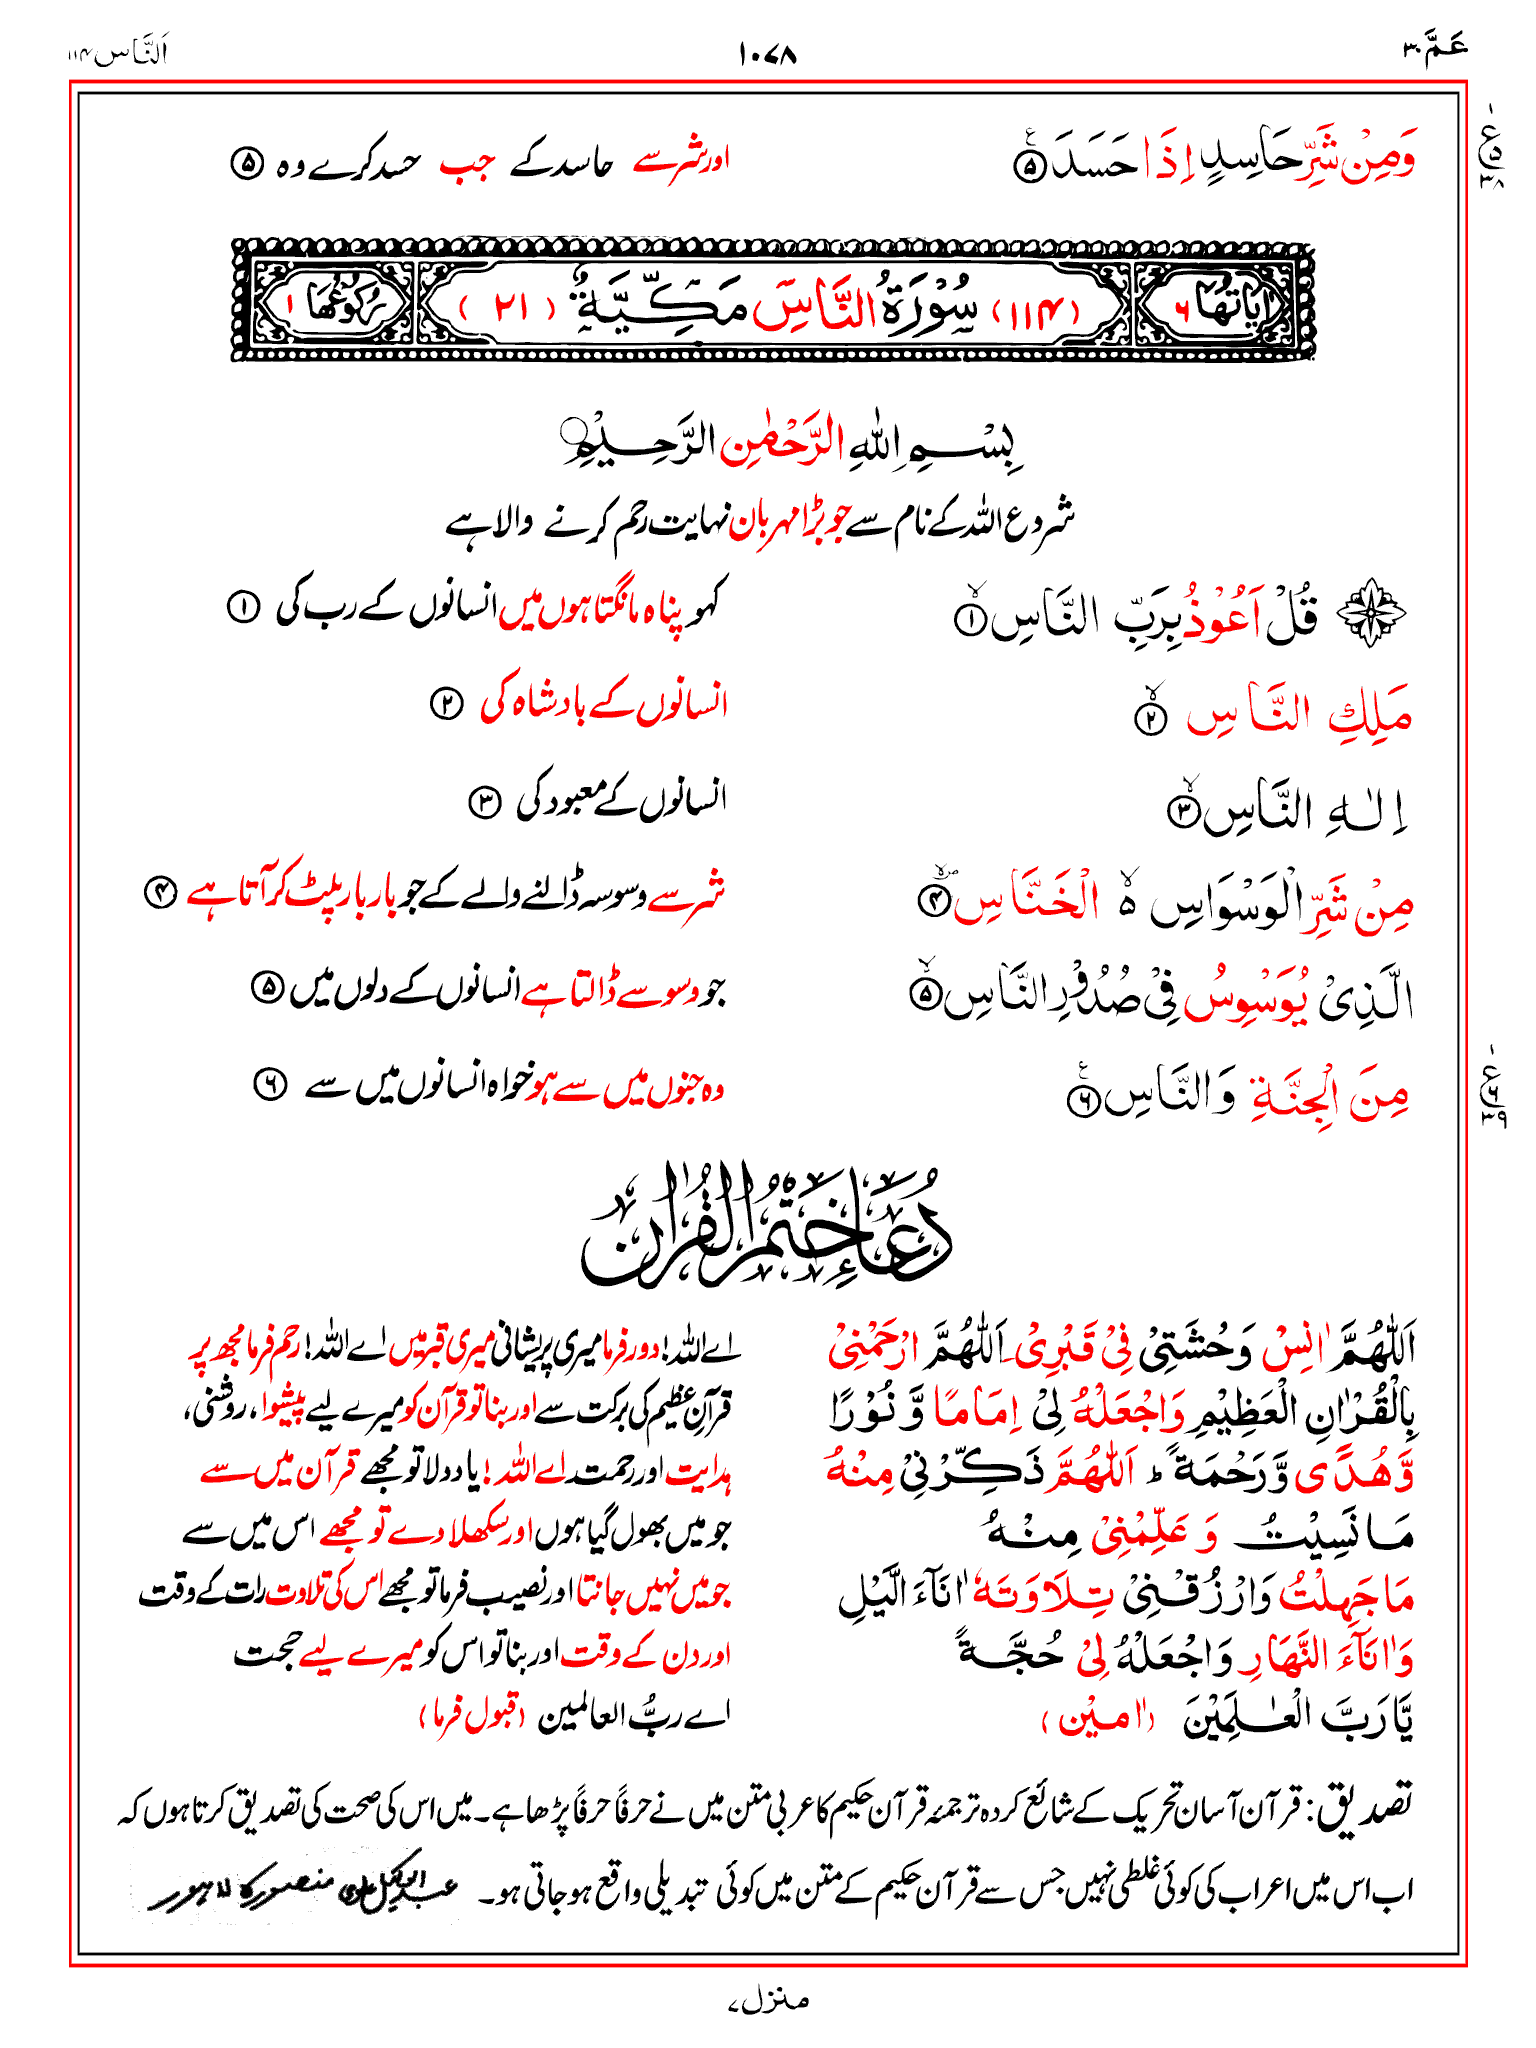 عَمَّ ٣٠
١٠٧٨
اَلنَّاس ١١٤
وَمِنْ شَرِّ حَاسِدٍ اِذَا حَسَدَ ۝٥ ع
اور شر سے حاسد کے جب حسد کرے وہ ۝٥
ع ١ ٥ ٣٨
اٰيَاتُهَا ٦
(١١٤) سُوْرَةُ النَّاسِ مَكِّيَّةٌ (٢١)
رُكُوْعُهَا ١
بِسْمِ اللّٰهِ الرَّحْمٰنِ الرَّحِيْمِ
شروع اللہ کے نام سے جو بڑا مہربان نہایت رحم کرنے والا ہے
قُلْ اَعُوْذُ بِرَبِّ النَّاسِ ۝١ۙ
کہو پناہ مانگتا ہوں میں انسانوں کے رب کی ۝١
مَلِكِ النَّاسِ ۝٢ۙ
انسانوں کے بادشاہ کی ۝٢
اِلٰهِ النَّاسِ ۝٣ۙ
انسانوں کے معبود کی ۝٣
مِنْ شَرِّ الْوَسْوَاسِ ۵ۙ الْخَنَّاسِ ۝٤
شر سے وسوسہ ڈالنے والے کے جو بار بار پلٹ کر آتا ہے ۝٤
الَّذِیْ يُوَسْوِسُ فِیْ صُدُوْرِ النَّاسِ ۝٥ۙ
جو وسوسے ڈالتا ہے انسانوں کے دلوں میں ۝٥
مِنَ الْجِنَّةِ وَالنَّاسِ ۝٦ ع
وہ جنوں میں سے ہو خواہ انسانوں میں سے ۝٦
ع ١ ٦ ٣٩
دُعَاءِ خَتْمُ الْقُرْاٰنِ
اَللّٰهُمَّ اٰنِسْ وَحْشَتِیْ فِیْ قَبْرِیْ۔ اَللّٰهُمَّ ارْحَمْنِیْ
اے اللہ! دور فرما میری پریشانی میری قبر میں اے اللہ! رحم فرما مجھ پر
بِالْقُرْاٰنِ الْعَظِيْمِ وَاجْعَلْهُ لِیْ اِمَامًا وَّ نُوْرًا
قرآنِ عظیم کی برکت سے اور بنا تو قرآن کو میرے لیے پیشوا، روشنی،
وَّهُدًی وَّرَحْمَةً ؕ اَللّٰهُمَّ ذَكِّرْنِیْ مِنْهُ
ہدایت اور رحمت اے اللہ! یاد دلا تو مجھے قرآن میں سے
مَا نَسِيْتُ وَ عَلِّمْنِیْ مِنْهُ
جو میں بھول گیا ہوں اور سکھلا دے تو مجھے اس میں سے
مَا جَهِلْتُ وَارْزُقْنِیْ تِلَاوَتَهٗ اٰنَآءَ الَّيْلِ
جو میں نہیں جانتا اور نصیب فرما تو مجھے اس کی تلاوت رات کے وقت
وَاٰنَآءَ النَّهَارِ وَاجْعَلْهُ لِیْ حُجَّةً
اور دن کے وقت اور بنا تو اس کو میرے لیے حجت
يَّارَبَّ الْعٰلَمِيْنَ (اٰمیْن)
اے ربُّ العالمین (قبول فرما)
تصدیق: قرآن آسان تحریک کے شائع کردہ ترجمۂ قرآن حکیم کا عربی متن میں نے حرفًا حرفًا پڑھا ہے۔ میں اس کی صحت کی تصدیق کرتا ہوں کہ
اب اس میں اعراب کی کوئی غلطی نہیں جس سے قرآن حکیم کے متن میں کوئی تبدیلی واقع ہو جاتی ہو۔ منصورہ لاہور
منزل ٧